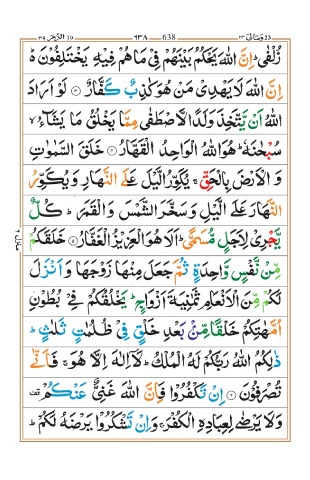 الزمر ٣٩ ٦٣٨ 638 ومالی ٢٣
زُلْفٰى ؕ اِنَّ اللّٰهَ يَحْكُمُ بَيْنَهُمْ فِىْ مَا هُمْ فِيْهِ يَخْتَلِفُوْنَ ؕ
اِنَّ اللّٰهَ لَا يَهْدِىْ مَنْ هُوَ كٰذِبٌ كَفَّارٌ ۞ لَوْ اَرَادَ
اللّٰهُ اَنْ يَّتَّخِذَ وَلَدًا لَّاصْطَفٰى مِمَّا يَخْلُقُ مَا يَشَآءُ ۙ
سُبْحٰنَهٗ ؕ هُوَ اللّٰهُ الْوَاحِدُ الْقَهَّارُ ۞ خَلَقَ السَّمٰوٰتِ
وَالْاَرْضَ بِالْحَقِّ ۚ يُكَوِّرُ الَّيْلَ عَلَى النَّهَارِ وَيُكَوِّرُ
النَّهَارَ عَلَى الَّيْلِ وَسَخَّرَ الشَّمْسَ وَالْقَمَرَ ؕ كُلٌّ
يَّجْرِىْ لِاَجَلٍ مُّسَمًّى ؕ اَلَا هُوَ الْعَزِيْزُ الْغَفَّارُ ۞ خَلَقَكُمْ
مِّنْ نَّفْسٍ وَّاحِدَةٍ ثُمَّ جَعَلَ مِنْهَا زَوْجَهَا وَاَنْزَلَ
لَكُمْ مِّنَ الْاَنْعَامِ ثَمٰنِيَةَ اَزْوَاجٍ ؕ يَخْلُقُكُمْ فِىْ بُطُوْنِ
اُمَّهٰتِكُمْ خَلْقًا مِّنْۢ بَعْدِ خَلْقٍ فِىْ ظُلُمٰتٍ ثَلٰثٍ ؕ
ذٰلِكُمُ اللّٰهُ رَبُّكُمْ لَهُ الْمُلْكُ ؕ لَاۤ اِلٰهَ اِلَّا هُوَ ۚ فَاَنّٰى
تُصْرَفُوْنَ ۞ اِنْ تَكْفُرُوْا فَاِنَّ اللّٰهَ غَنِىٌّ عَنْكُمْ
وَلَا يَرْضٰى لِعِبَادِهِ الْكُفْرَ ۚ وَاِنْ تَشْكُرُوْا يَرْضَهُ لَكُمْ ؕ